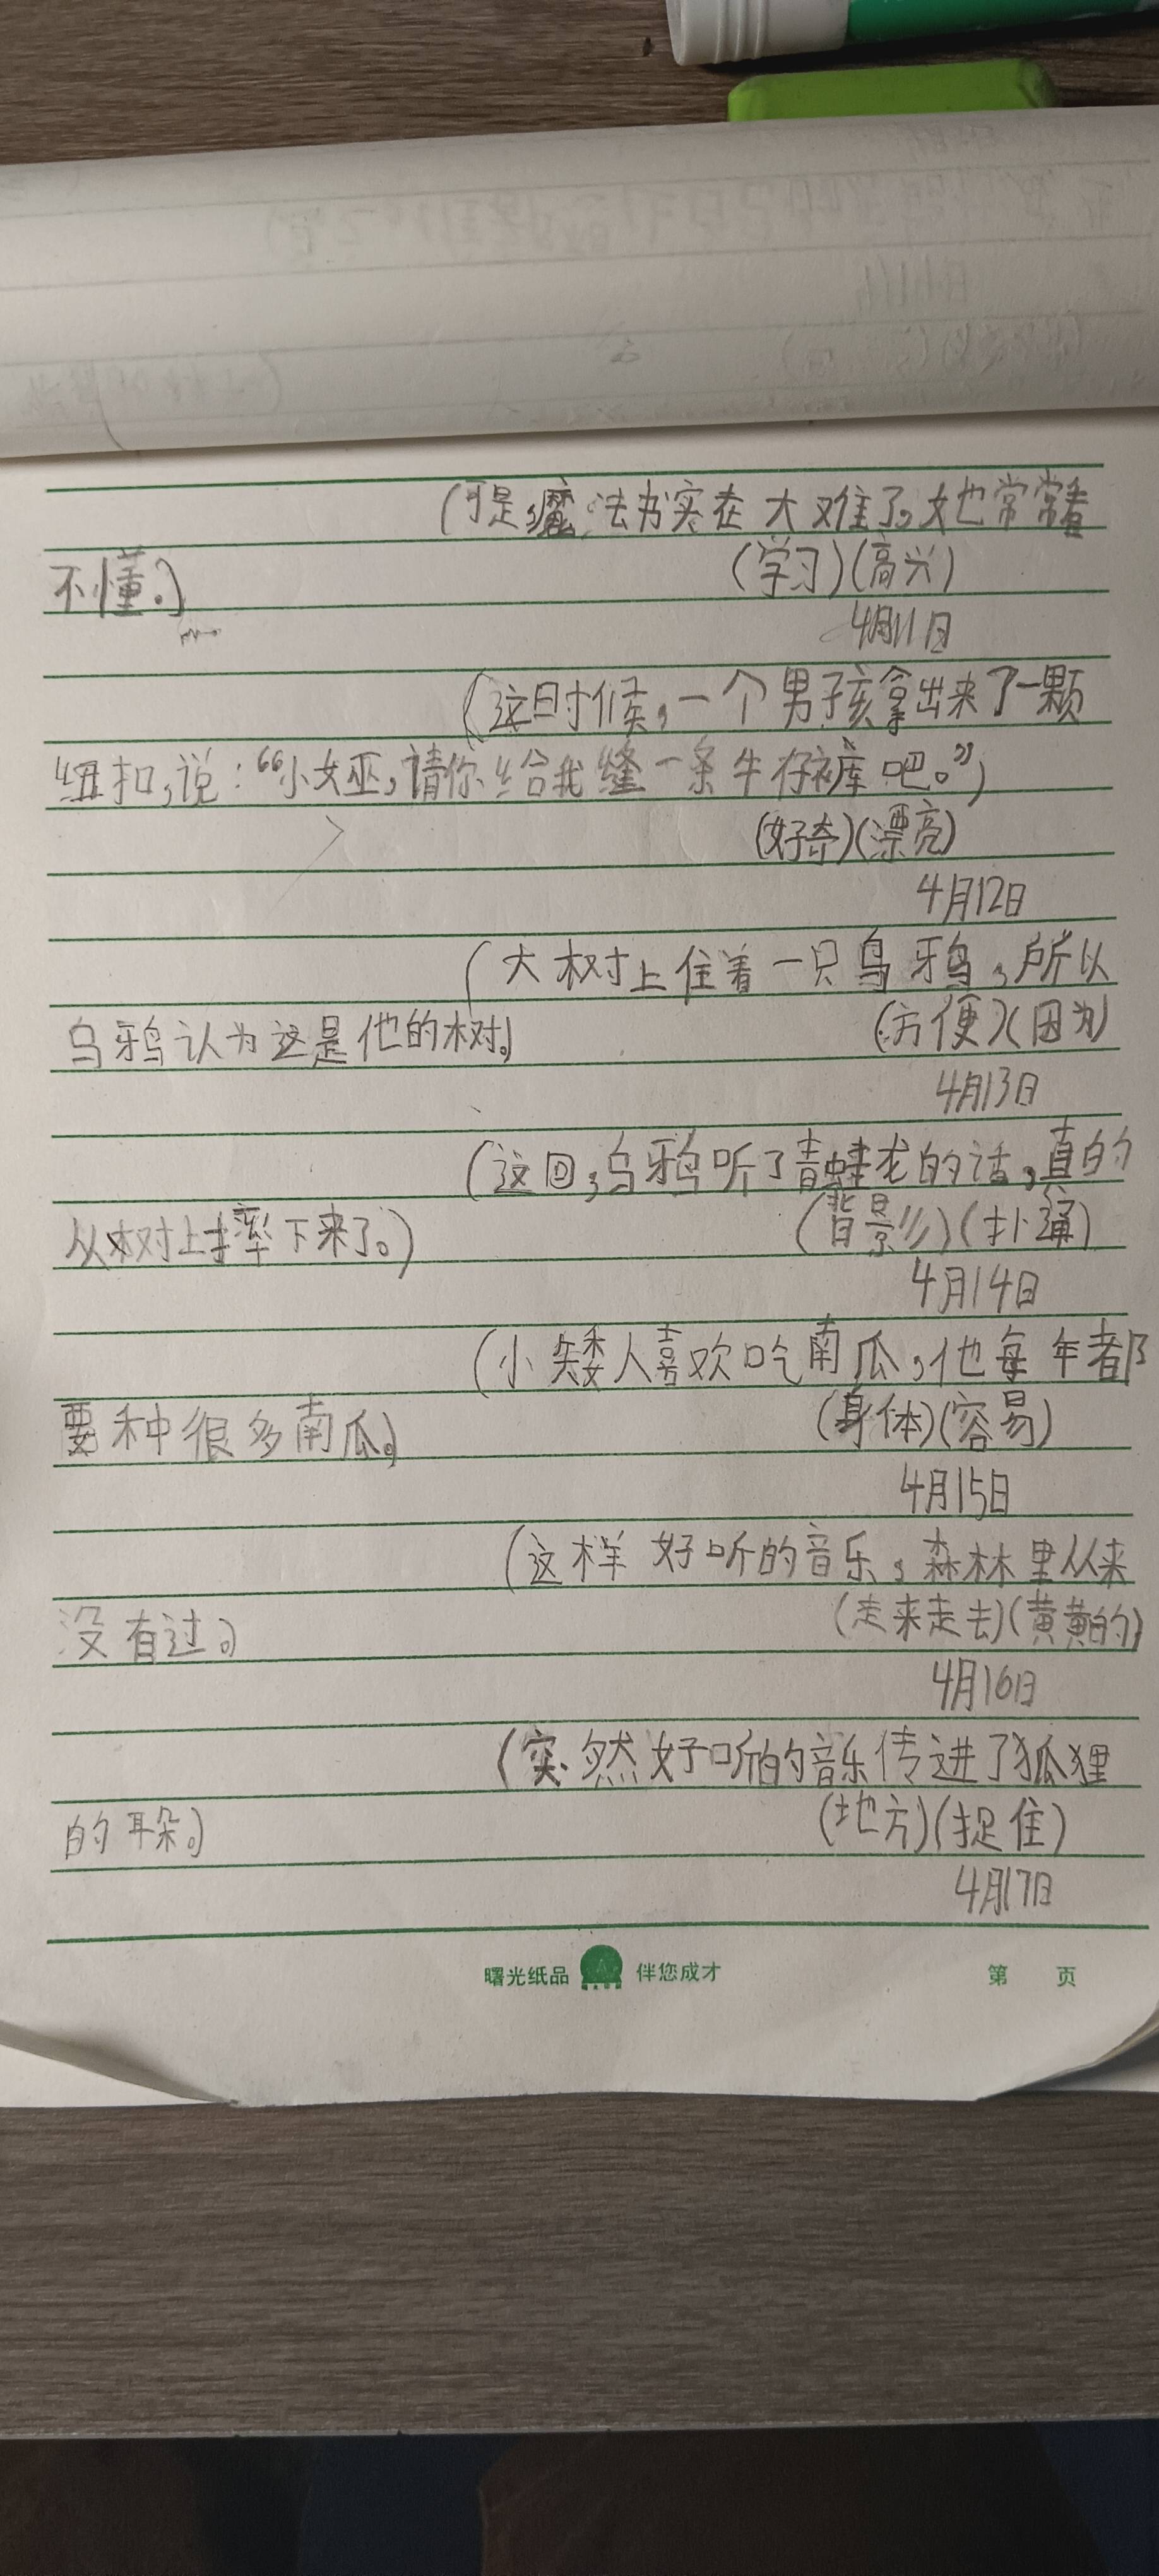 (可是,魔法书实在大难了,她也常常看
不懂。)
(学习)(高兴)
4月11日
(这时候,一个男孩拿出来了一颗
纽扣,说:“小女巫,请你给我缝一条牛仔裤吧。”)
(好奇)(漂亮)
4月12日
(大树上住着一只乌鸦,所以
乌鸦认为这是他的树。)
(方便)(因为)
4月13日
(这回,乌鸦听了青蛙老的话,真的
从树上摔下来了。)
(背影)(扑通)
4月14日
(小矮人喜欢吃南瓜,他每年都
要种很多南瓜。)
(身体)(容易)
4月15日
(这样好听的音乐,森林里从来
没有过。)
(走来走去)(黄黄的)
4月16日
(突然好听的音乐传进了狐狸
的耳朵。)
(地方)(捉住)
4月17日
曙光纸品 伴您成才 第 页